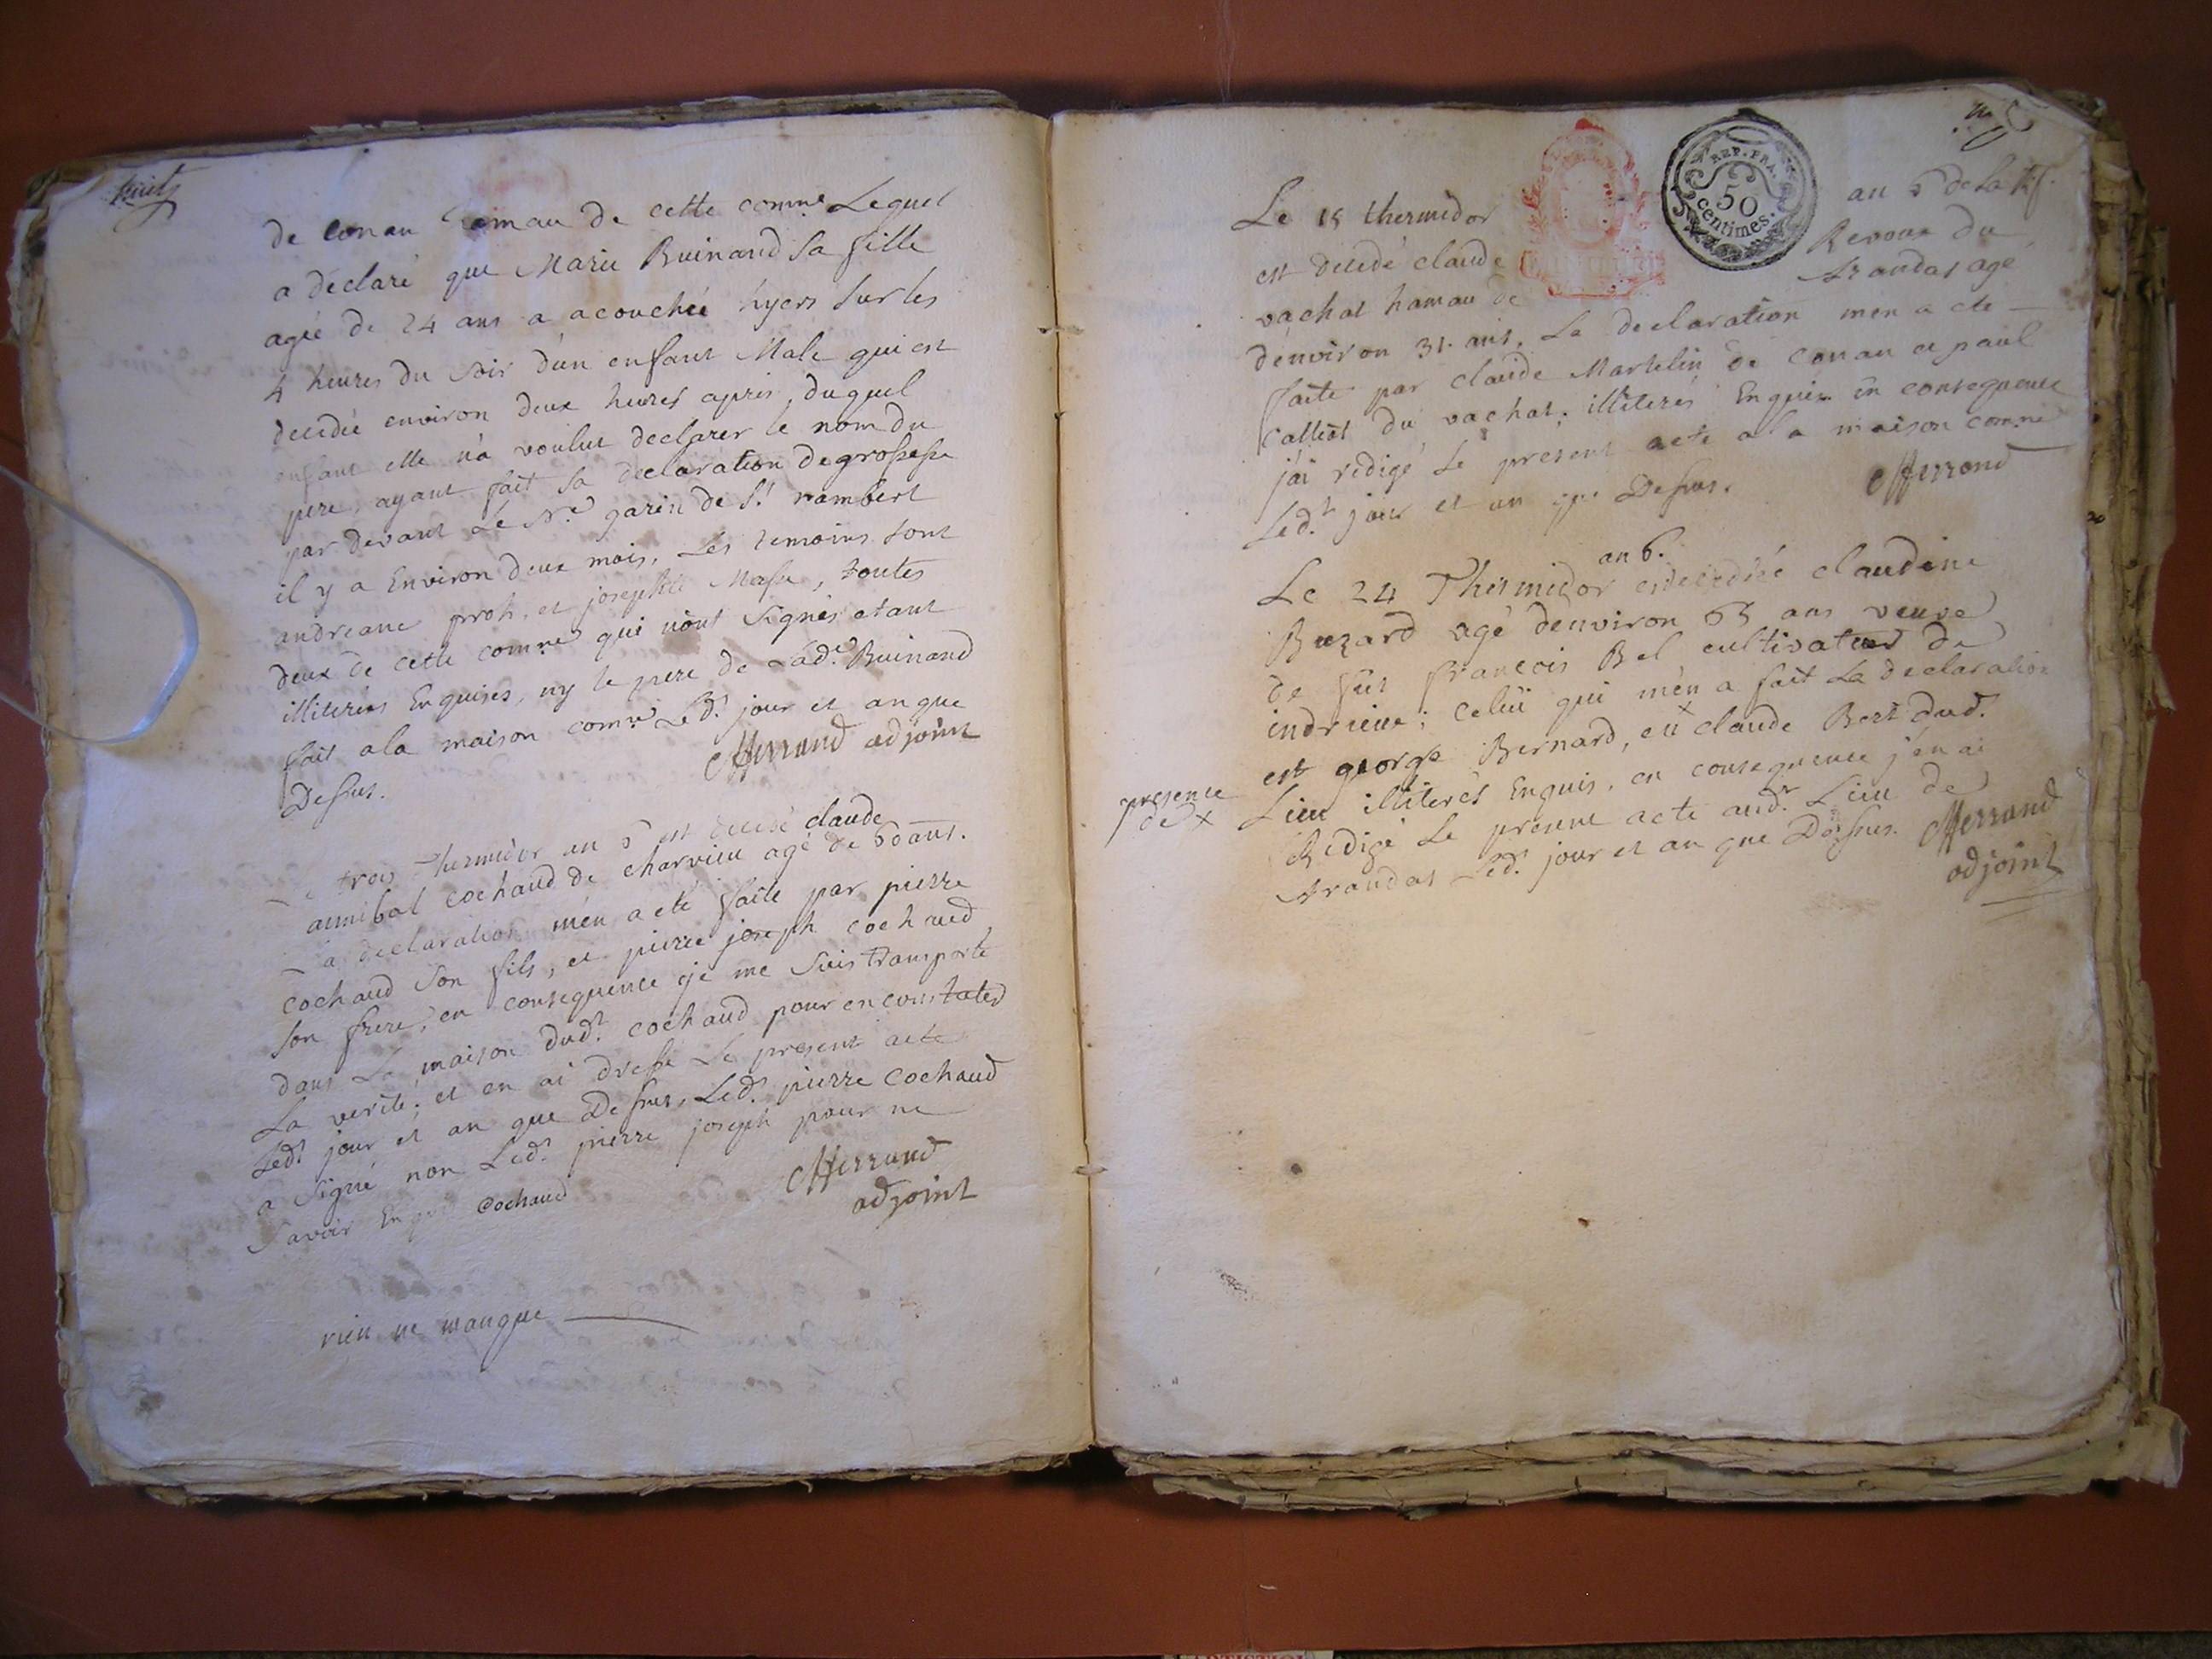 huit
de Conan hamau de cette comm.e Lequel
a déclaré que Marie Buinand sa fille
agée de 24 ans a acouchée hyers sur les
4 heures du soir d'un enfant Male qui est
decedée environ deux heures apres, duquel
enfant elle n'a voulut declarer le nom du
pere, ayant fait sa declaration de grossesse
par devant Le N.re garin de S.t rambert
il y a Environ deux mois, Les temoins sont
andreane proh. et josephte Masse, toutes
deux de cette comm.e qui n'ont signés etant
illiterées Enquises, ny le pere de Lad.e Buinand
fait a la maison comm.e Led.t jour et an que
Dessus.
Merrand adjoint
trois Thermidor an 6 est decedé claude
annibal cochaud de charvieu agé de 60 ans.
La declaration m'en a eté faite par pierre
cochaud son fils, et pierre joseph cochaud
son frere, en consequence je me suis transporté
dans La maison dud.t cochaud pour en constater
La verité, et en ai dressé Le present acte
Led.t jour et an que Dessus, Led.t pierre cochaud
a signé non Led.t pierre joseph pour ne
savoir Enquis cochaud
Merrand
adjoint
rien ne manque
REP. FRA.
50
centimes.
Le 15 thermidor an 6 de la
est decedé claude Revoux du
vachat hamau de arandas agé
d'environ 31 ans, La declaration m'en a ete
faite par claude Martelin de Conan et paul
calliot du vachat, illiterés Enquis en consequence
j'ai redigé Le present acte a la maison comm.e
Led.t jour et an que Dessus.
Merrand
an 6.
Le 24 Thermidor est decedée claudine
Buzard agé d'environ 65 ans veuve
de feu françois Bel cultivateur de
indrieux; Celui qui m'en a fait La declaration
est george Bernard, en x claude Bert dud.t
presence
de x
Lieu illiterés Enquis, en consequence j'en ai
Redigé Le present acte aud.t Lieu de
arandas Led.t jour et an que Dessus. Merrand
adjoint